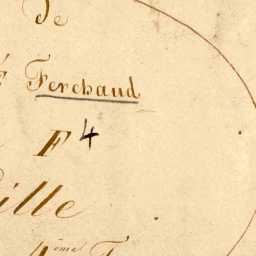 de
Ferchaud
F 4
ille
4ème